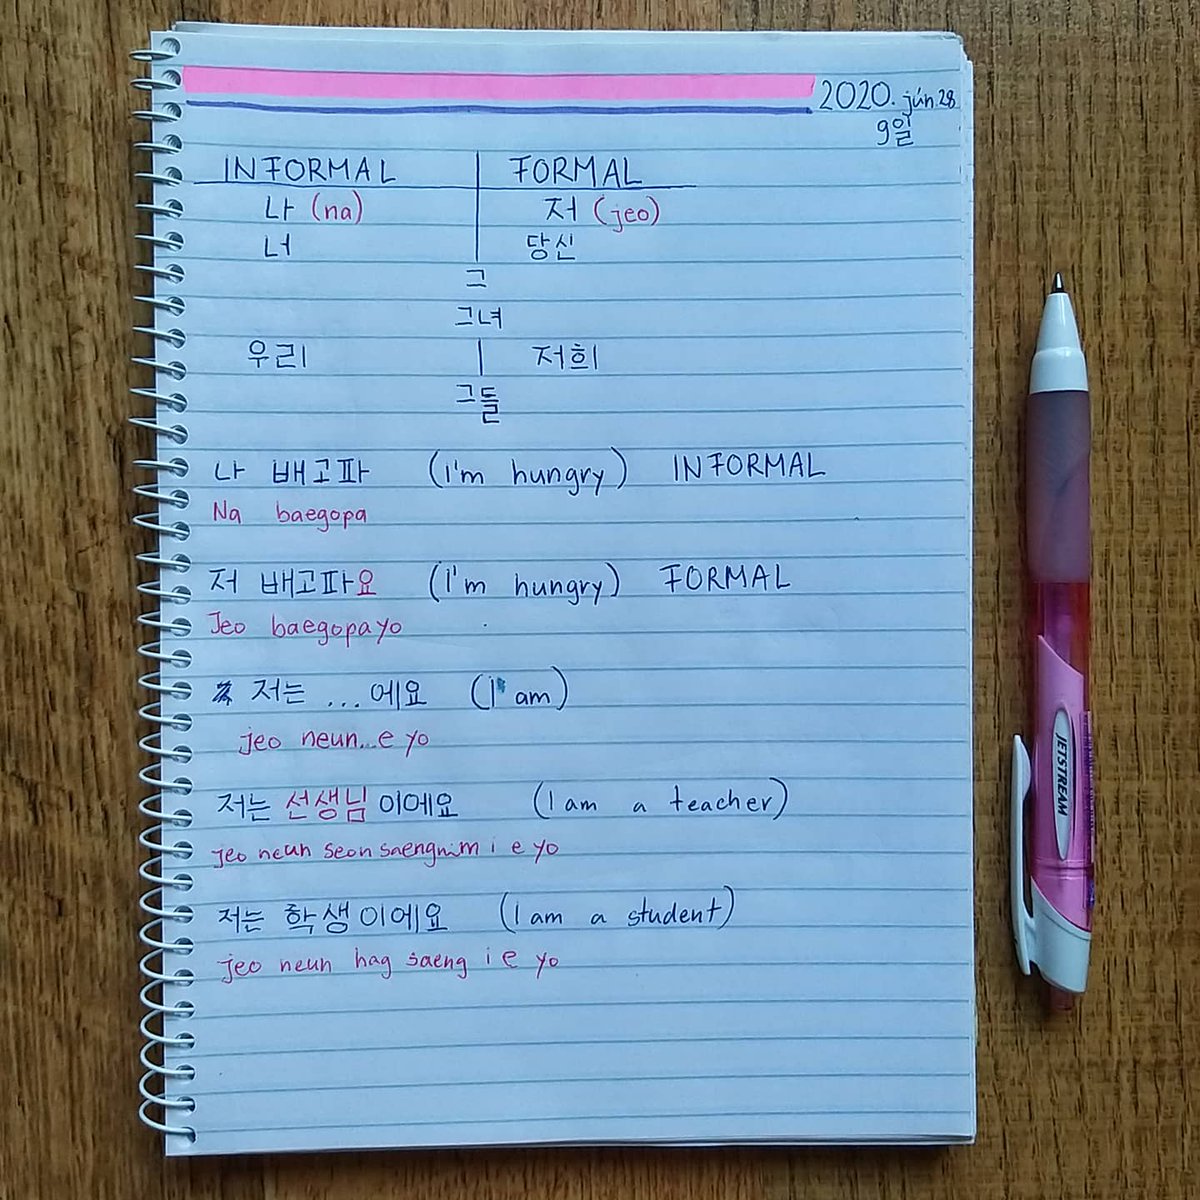 2020. jún.28
9일
INFORMAL FORMAL
나 (na) 저 (jeo)
너 당신
그
그녀
우리 저희
그들
나 배고파 (I'm hungry) INFORMAL
Na baegopa
저 배고파요 (I'm hungry) FORMAL
Jeo baegopayo
저는 ...에요 (I am)
jeo neun...e yo
저는 선생님이에요 (I am a teacher)
jeo neun seon saengnim i e yo
저는 학생이에요 (I am a student)
jeo neun hag saeng i e yo
JETSTREAM